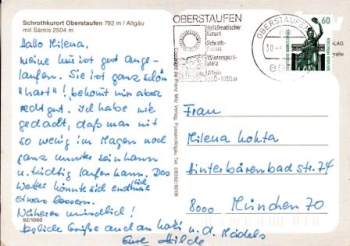 Schrothkurort Oberstaufen 792 m / Allgäu
mit Säntis 2504 m
Hallo Milena,
meine Kur ist gut ange-
laufen. Sie ist ganz schön
"hart"! bekomt mir aber
recht gut. Ich habe nie
gedacht, daß man mit
so wenig im Magen noch
ganz munter sein kann
u. tüchtig laufen kann. Das
Wetter könnte sich endlich
etwas bessern.
Näheres mündlich!
Herzliche Grüße auch an Kati u. d. Mädels
Eure Hilde
OBERSTAUFEN
Schroth-
kurort
Wintersport-
platz
OBERSTAUFEN
60
Frau
Milena
Hinterbärenbad str. 74
8000 München 70